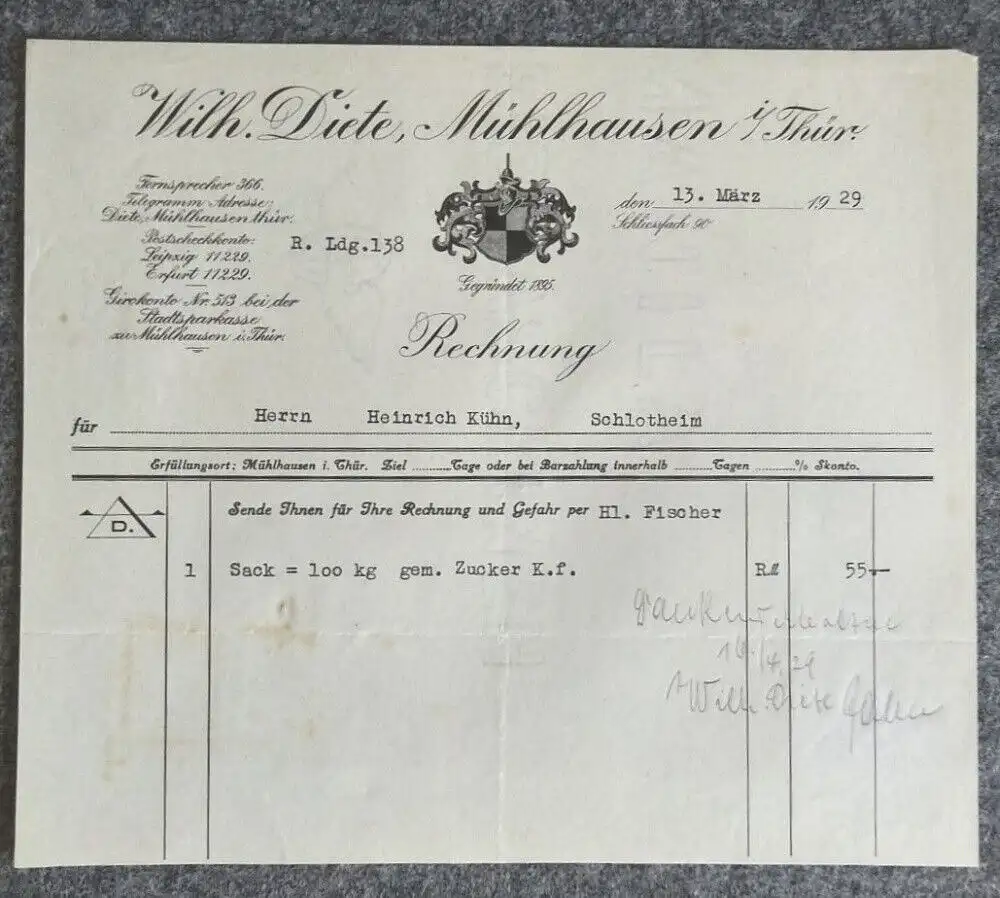 Wilh. Diete, Mühlhausen i/Thür.
Fernsprecher 366.
Telegramm Adresse:
Diete, Mühlhausenthür.
Postscheckkonto:
Leipzig 11229.
Erfurt 11229.
Girokonto Nr. 513 bei der
Stadtsparkasse
zu Mühlhausen i. Thür.
R. Ldg.138
Gegründet 1895.
den 13. März 1929
Schliessfach 90
Rechnung
für Herrn Heinrich Kühn, Schlotheim
Erfüllungsort: Mühlhausen i. Thür. Ziel ......... Tage oder bei Barzahlung innerhalb ......... Tagen ......... % Skonto.
D.
Sende Ihnen für Ihre Rechnung und Gefahr per Hl. Fischer
1 Sack = 100 kg gem. Zucker K.f. RM 55.—
Dankend erhalten
/4. 29
Wilh. Diete